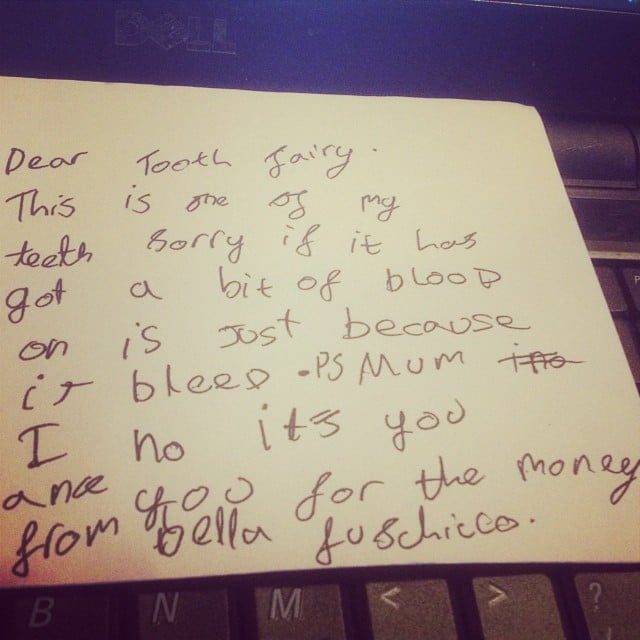 DELL
Dear Tooth fairy.
This is one of my
teeth sorry if it has
got a bit of blood
on is Just because
it bleed .PS Mum
I no its you
ance you for the money
from bella fuschicco.
B N M < > ?